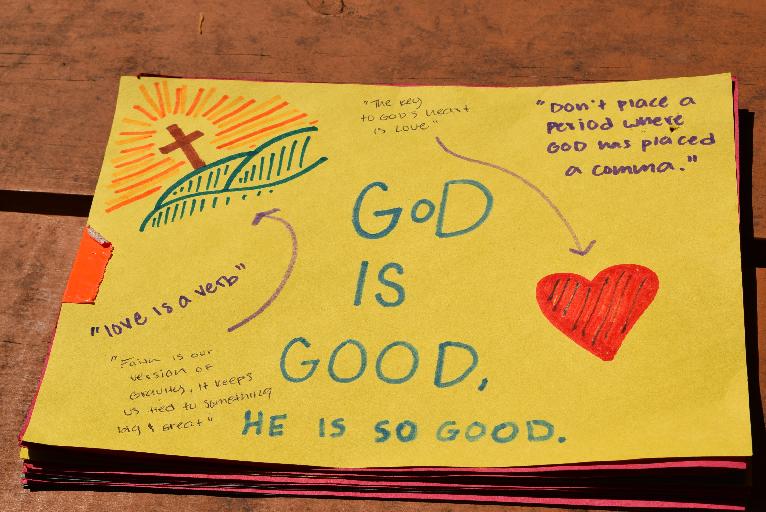 "The key
to GOD's Heart
is Love"
"Don't place a
Period where
GOD has placed
a comma."
GoD
IS
GOOD,
HE IS SO GOOD.
"love is a verb"
"Faith is our
version of
Gravity, it keeps
us tied to something
big & great"